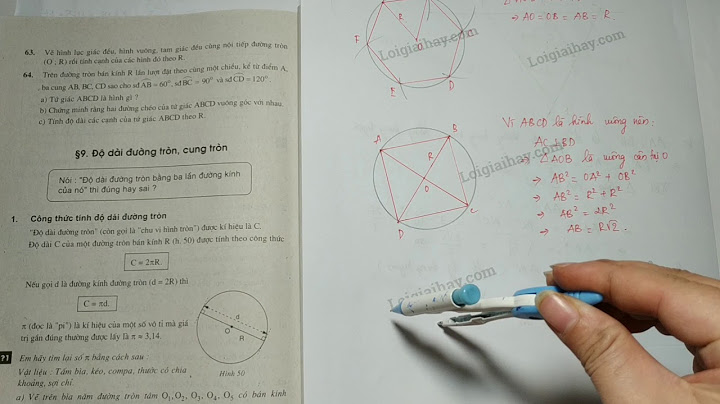 63. Vẽ hình lục giác đều, hình vuông, tam giác đều cùng nội tiếp đường tròn
(O ; R) rồi tính cạnh của các hình đó theo R.
64. Trên đường tròn bán kính R lần lượt đặt theo cùng một chiều, kể từ điểm A,
ba cung AB, BC, CD sao cho sđAB = 60°, sđBC = 90° và sđCD = 120°.
a) Tứ giác ABCD là hình gì ?
b) Chứng minh rằng hai đường chéo của tứ giác ABCD vuông góc với nhau.
c) Tính độ dài các cạnh của tứ giác ABCD theo R.
§9. Độ dài đường tròn, cung tròn
Nói : "Độ dài đường tròn bằng ba lần đường kính
của nó" thì đúng hay sai ?
1. Công thức tính độ dài đường tròn
"Độ dài đường tròn" (còn gọi là "chu vi hình tròn") được kí hiệu là C.
Độ dài C của một đường tròn bán kính R (h. 50) được tính theo công thức
C = 2πR.
Nếu gọi d là đường kính đường tròn (d = 2R) thì
C = πd.
π (đọc là "pi") là kí hiệu của một số vô tỉ mà giá
trị gần đúng thường được lấy là π ≈ 3,14.
d
O
R
Hình 50
?1 Em hãy tìm lại số π bằng cách sau
Vật liệu : Tấm bìa, kéo, compa, thước có chia
khoảng, sợi chỉ.
a) Vẽ trên bìa năm đường tròn tâm O₁, O₂, O₃, O₄, O₅ có bán kính
R
F
E
D
⇒ AO = OB = AB = R.
Loigiaihay.com
A
B
R
O
D
C
Loigiaihay.com
Vì ABCD là hình vuông nên:
AC ⊥ BD
⇒ △AOB là vuông cân tại O
⇒ AB² = OA² + OB²
⇒ AB² = R² + R²
⇒ AB² = 2R²
⇒ AB = R√2.
Loigiaihay.com
Loigiaihay.com